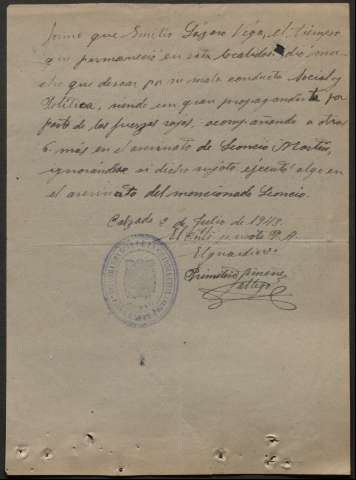 forme que Emilio Lázaro Vega, el tiempo
que permaneció en esta localidad dió mu-
cho que desear por su mala conducta Social y
Política, siendo un gran propagandista por
parte de las fuerzas rojas, acompañando a otros
6 más en el asesinato de Leoncio Martín,
ignorándose si dicho sujeto ejecutó algo en
el asesinato del mencionado Leoncio.
Calzada 2 de Julio de 1943.
El P. A.
El guardia
Primitivo Jiménez
Gallego